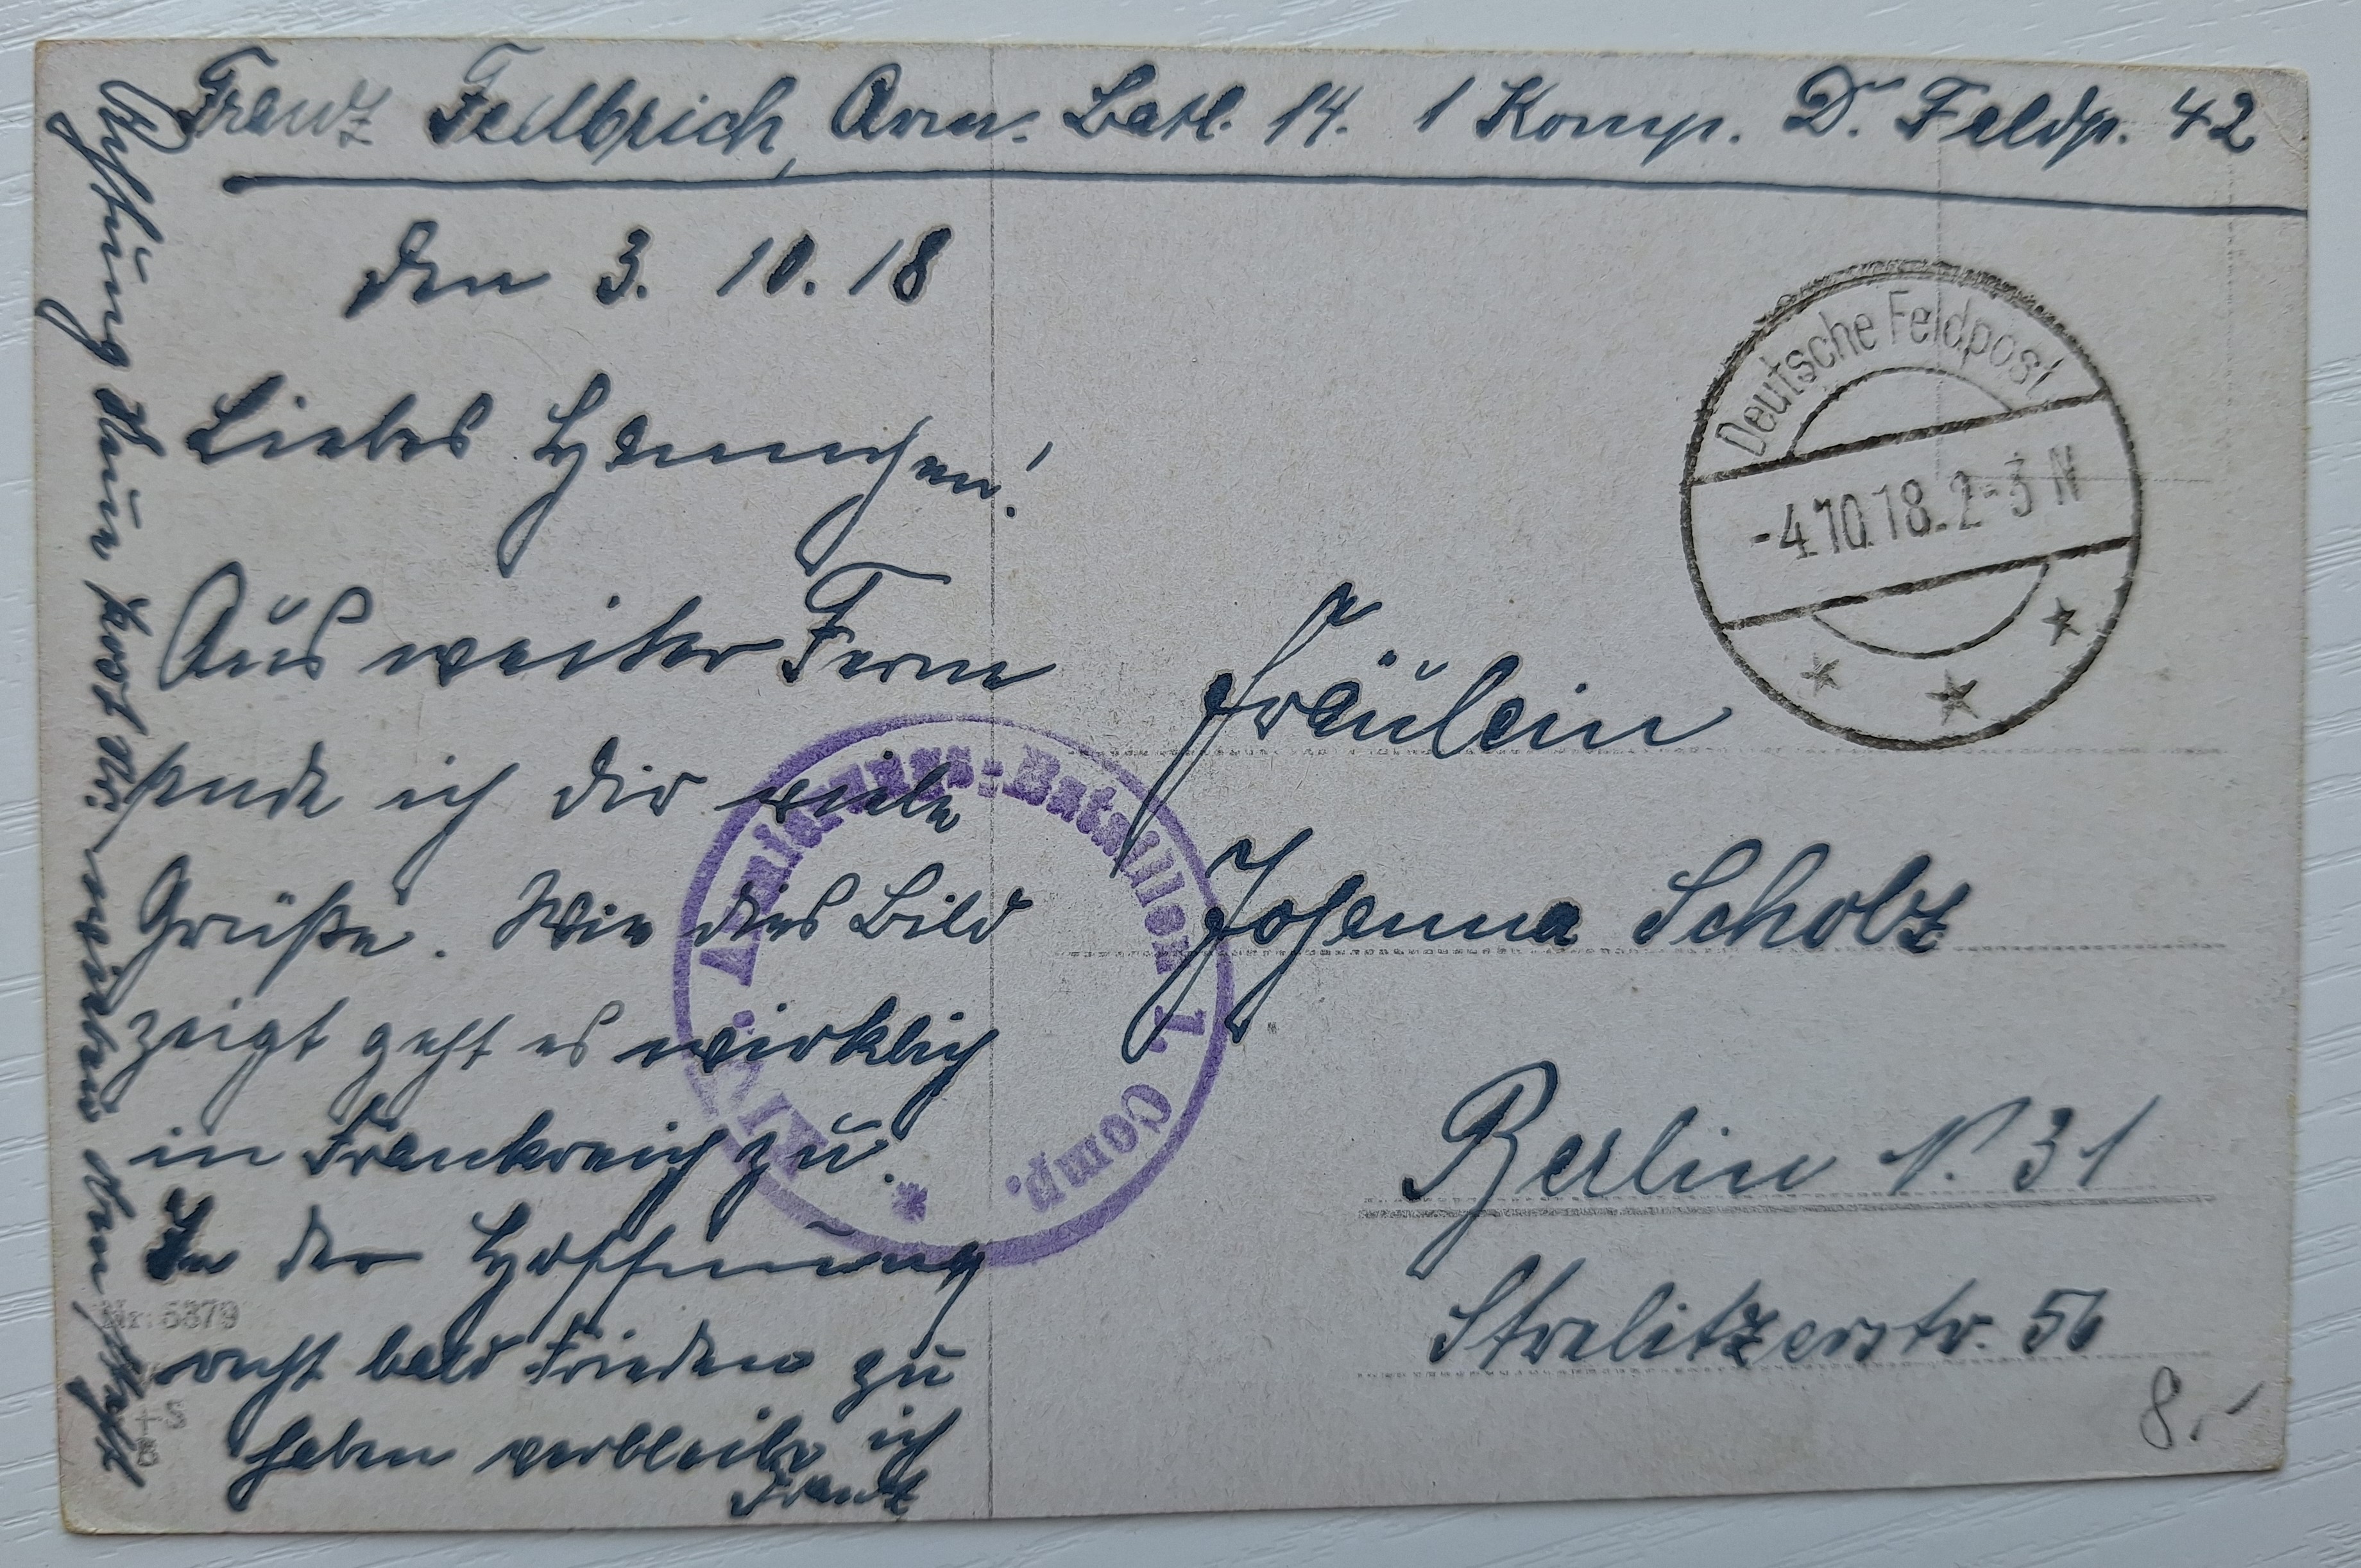 Franz Fedlbrich, Arm. Batl. 14. 1 Komp. D. Feldp. 42
den 3. 10. 18
Liebes Hannchen!
Aus weiter Fern
sende ich dir viele
Grüße. Wie dies Bild
zeigt geht es wirklich
in Frankreich zu.
In der Hoffnung
recht bald Frieden zu
haben verbleibe ich
Franz
Deutsche Feldpost
-4.10.18.2-3 N
Fräulein
Johanna Scholz
Berlin N. 31
Strelitzerstr. 56
8.-
XIV. Armierungs-Bataillon 1. Comp.
Nr. 5379